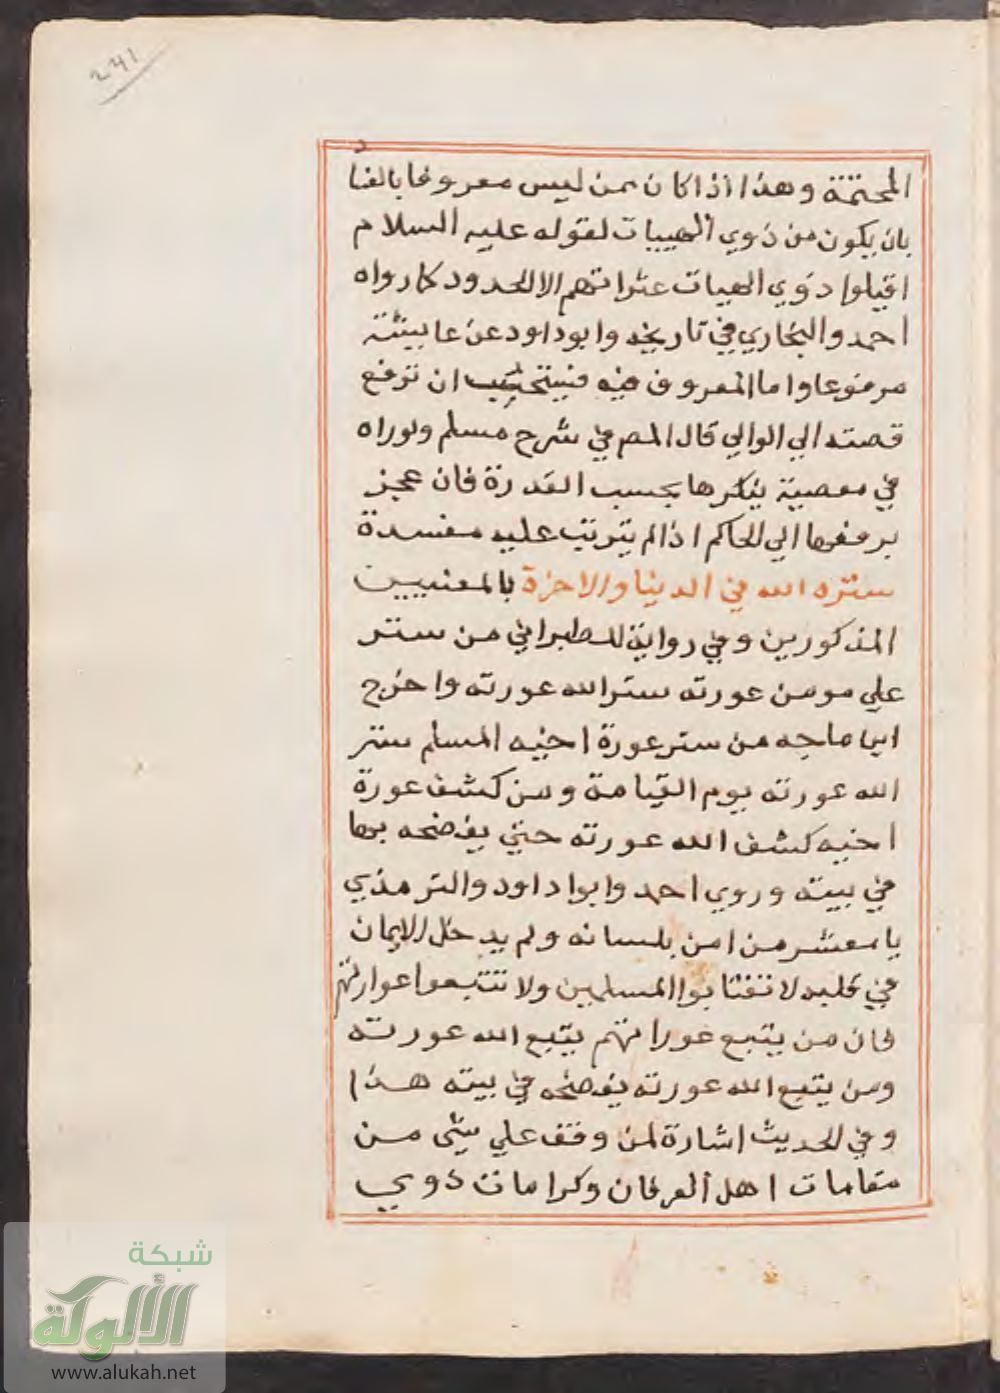 241
المحتمة وهذا اذا كان ممن ليس معروفا بالفسا
د
بان يكون من ذوي الهييات لقوله عليه السلام
اقيلوا ذوي الهيات عثراتهم الا الحدود كما رواه
احمد والبخاري في تاريخه وابو داود عن عايشة
مرفوعا واما المعروف فيه فيستحب ان ترفع
قصته الي الوالي قال المص في شرح مسلم ولوراه
في معصية ينكرها بحسب القدرة فان عجز
يرفعها الي الحاكم اذا لم يترتب عليه مفسدة
ستره الله في الدنيا والاخرة بالمعنيين
المذكورين وفي رواية للطبراني من ستر
علي مومن عورته ستر الله عورته واخرج
ابن ماجه من ستر عورة اخيه المسلم ستر
الله عورته يوم القيامة ومن كشف عورة
اخيه كشف الله عورته حتي يفضحه بها
في بيته وروي احمد وابوا داود والترمذي
يا معشر من امن بلسانه ولم يدخل الايمان
في قلبه لا تغتابوا المسلمين ولا تتبعوا عوراتهم
فان من يتبع عوراتهم يتبع الله عورته
ومن يتبع الله عورته يفضحه في بيته هذا
وفي الحديث اشارة لمن وقف علي شي من
مقامات اهل العرفان وكرامات ذوي
شبكة
الألوكة
www.alukah.net